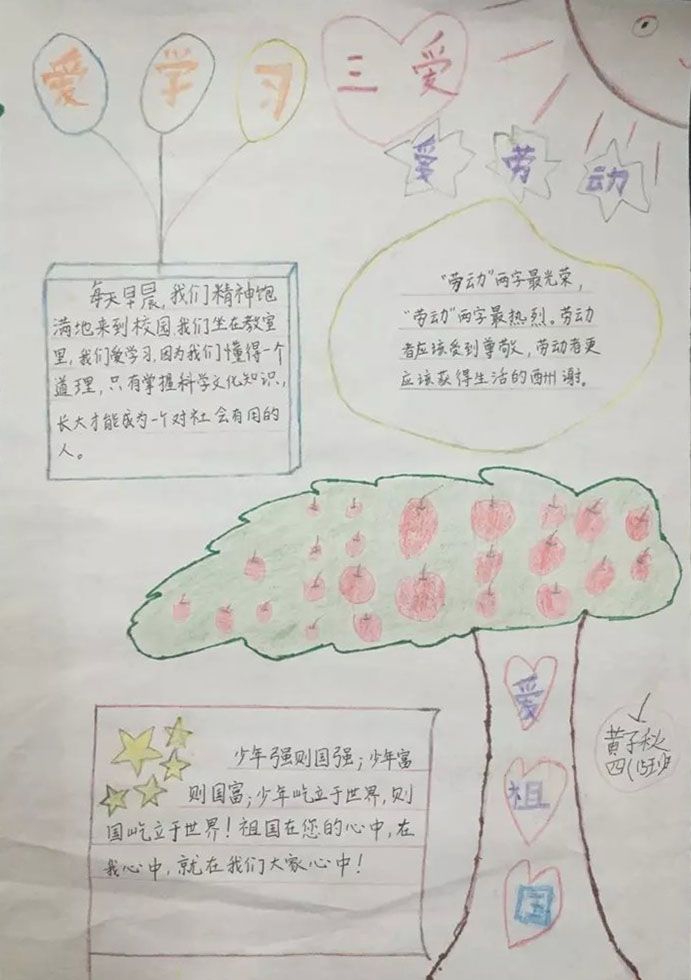 爱学习
三爱
爱劳动
每天早晨,我们精神饱
满地来到校园.我们坐在教室
里,我们爱学习,因为我们懂得一个
道理,只有掌握科学文化知识,
长大才能成为一个对社会有用的
人。
“劳动”两字最光荣,
“劳动”两字最热烈。劳动
者应该受到尊敬,劳动者更
应该获得生活的酬谢。
爱
祖
国
少年强则国强;少年富
则国富;少年屹立于世界,则
国屹立于世界!祖国在您的心中,在
我心中,就在我们大家心中!
黄子秋